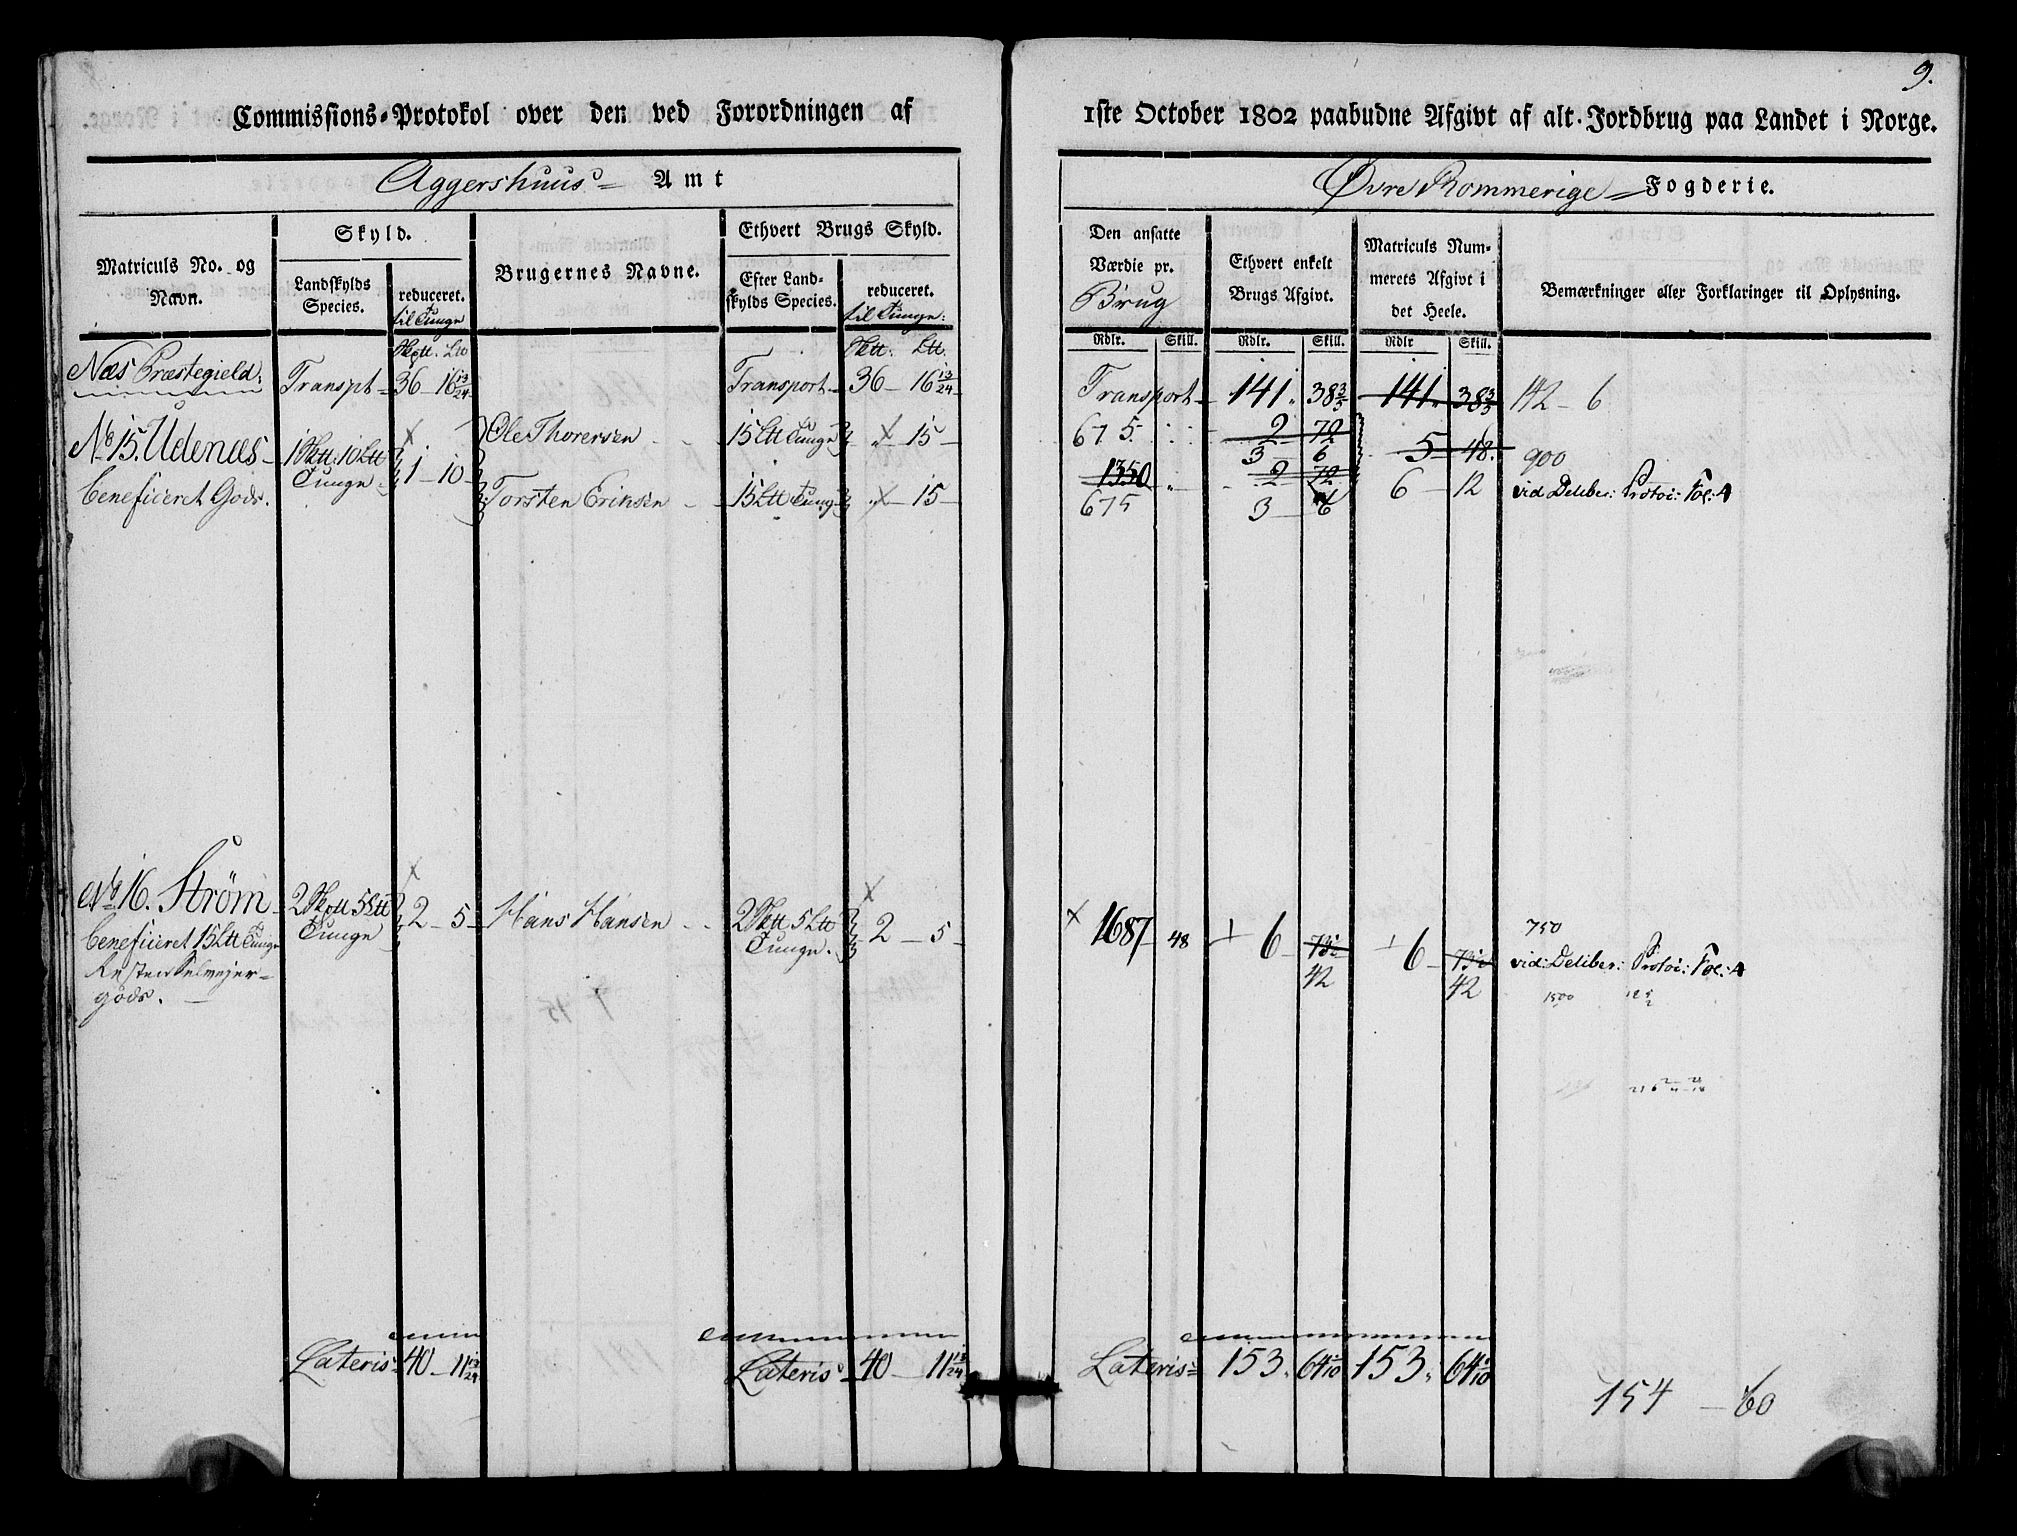 9.
Commissions-Protokol over den ved Forordningen af 1ste October 1802 paabudne Afgivt af alt Jordbrug paa Landet i Norge.
Aggershuus Amt
Øvre Rommerige Fogderie.
Matriculs No. og Navn.
Skyld.
Landskylds Species.
reduceret. til Tunge
Brugernes Navne.
Ethvert Brugs Skyld.
Efter Landskylds Species.
reduceret. til Tunge:
Den ansatte Værdie pr. Brug
Ethvert enkelt Brugs Afgivt.
Matriculs Nummerets Afgivt i det Heele.
Bemærkninger eller Forklaringer til Oplysning.
Rdlr. Skill. Rdlr. Skill. Rdlr Skill.
Næs Præstegield. Transpt 36 - 16 13/24 Transport 36 - 16 13/24
Transport 141. 38 3/5 141. 38 3/5 142 - 6
No 15. Udenæs 1 Sktt. 10 Ltt Tunge 1 - 10 Ole Thorersen 15 Ltt Tunge 15
beneficeret Gods. Torsten Erichsen 15 Ltt Tunge 15
675. 2 72 5 - 48. 900
3 6
1350 2 72 6 - 12 vid: Deliber: Protoc: Fol: 4
675 3 6
No 16. Strøm 2 Sktt 5 Ltt Tunge 2 - 5 Hans Hansen 2 Sktt 5 Ltt Tunge. 2 - 5
beneficeret 15 Ltt Tunge
Resten Selvejer-
gods.
750
1687 48 6 42 6 42 vid: Deliber: Protoc: Fol: 4
1500
Lateris 40 - 11 13/24 Lateris 40 - 11 13/24
Lateris 153. 64 1/10 153. 64 1/10
154 - 60